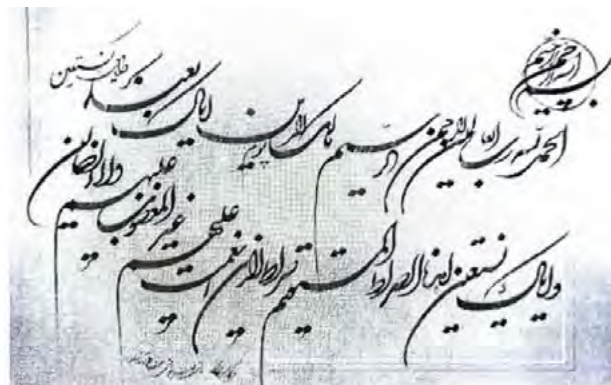 بسم الله الرحمن الرحيم
الحمد لله رب العالمين الرحمن الرحيم مالك يوم الدين اياك نعبد
واياك نستعين اهدنا الصراط المستقيم صراط الذين انعمت عليهم غير المغضوب عليهم ولا الضالين